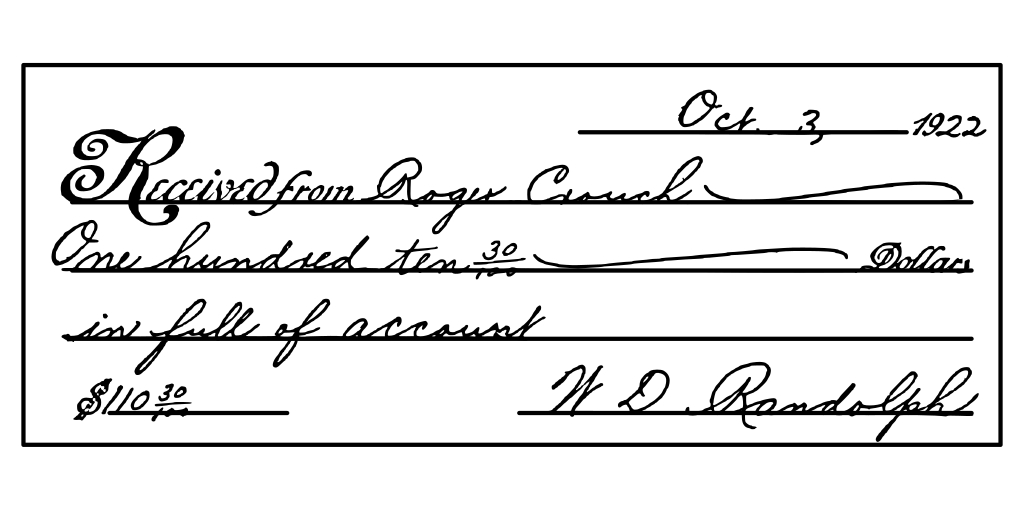 Oct. 3, 1922
Received from Roger Crouch
One hundred ten 30/100 Dollars
in full of account
$110 30/100 W D Randolph